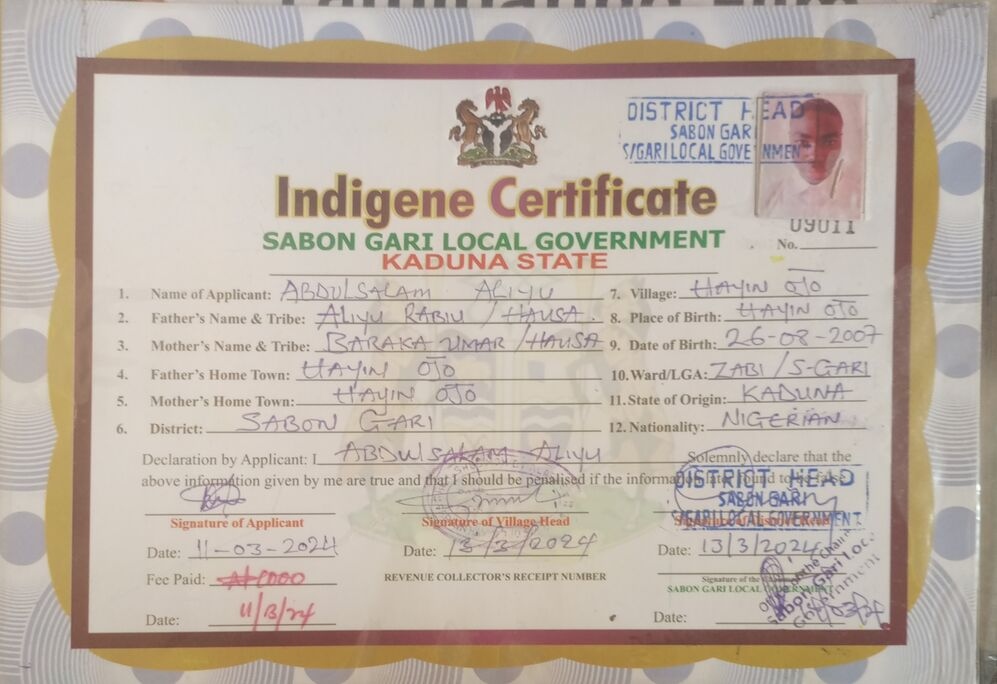 DISTRICT HEAD
SABON GARI
S/GARI LOCAL GOVERNMENT
Indigene Certificate
09011
SABON GARI LOCAL GOVERNMENT
No.
KADUNA STATE
1. Name of Applicant: ABDULSALAM ALIYU
7. Village: HAYIN OJO
2. Father's Name & Tribe: ALIYU RABIU / HAUSA
8. Place of Birth: HAYIN OJO
3. Mother's Name & Tribe: BARAKA UMAR / HAUSA
9. Date of Birth: 26-08-2007
4. Father's Home Town: HAYIN OJO
10. Ward/LGA: ZABI / S-GARI
5. Mother's Home Town: HAYIN OJO
11. State of Origin: KADUNA
6. District: SABON GARI
12. Nationality: NIGERIAN
Declaration by Applicant: I ABDULSALAM ALIYU Solemnly declare that the
above information given by me are true and that I should be penalised if the information later found to be false
DISTRICT HEAD
SABON GARI
S/GARI LOCAL GOVERNMENT
Signature of Applicant
Signature of Village Head
Date: 11-03-2024
Date: 13/3/2024
Date: 13/3/2024
Fee Paid:
REVENUE COLLECTOR'S RECEIPT NUMBER
Signature of the
SABON GARI LOCAL GOVERNMENT
Date: 11/3/24
Date:
Sabon Gari Local
Government